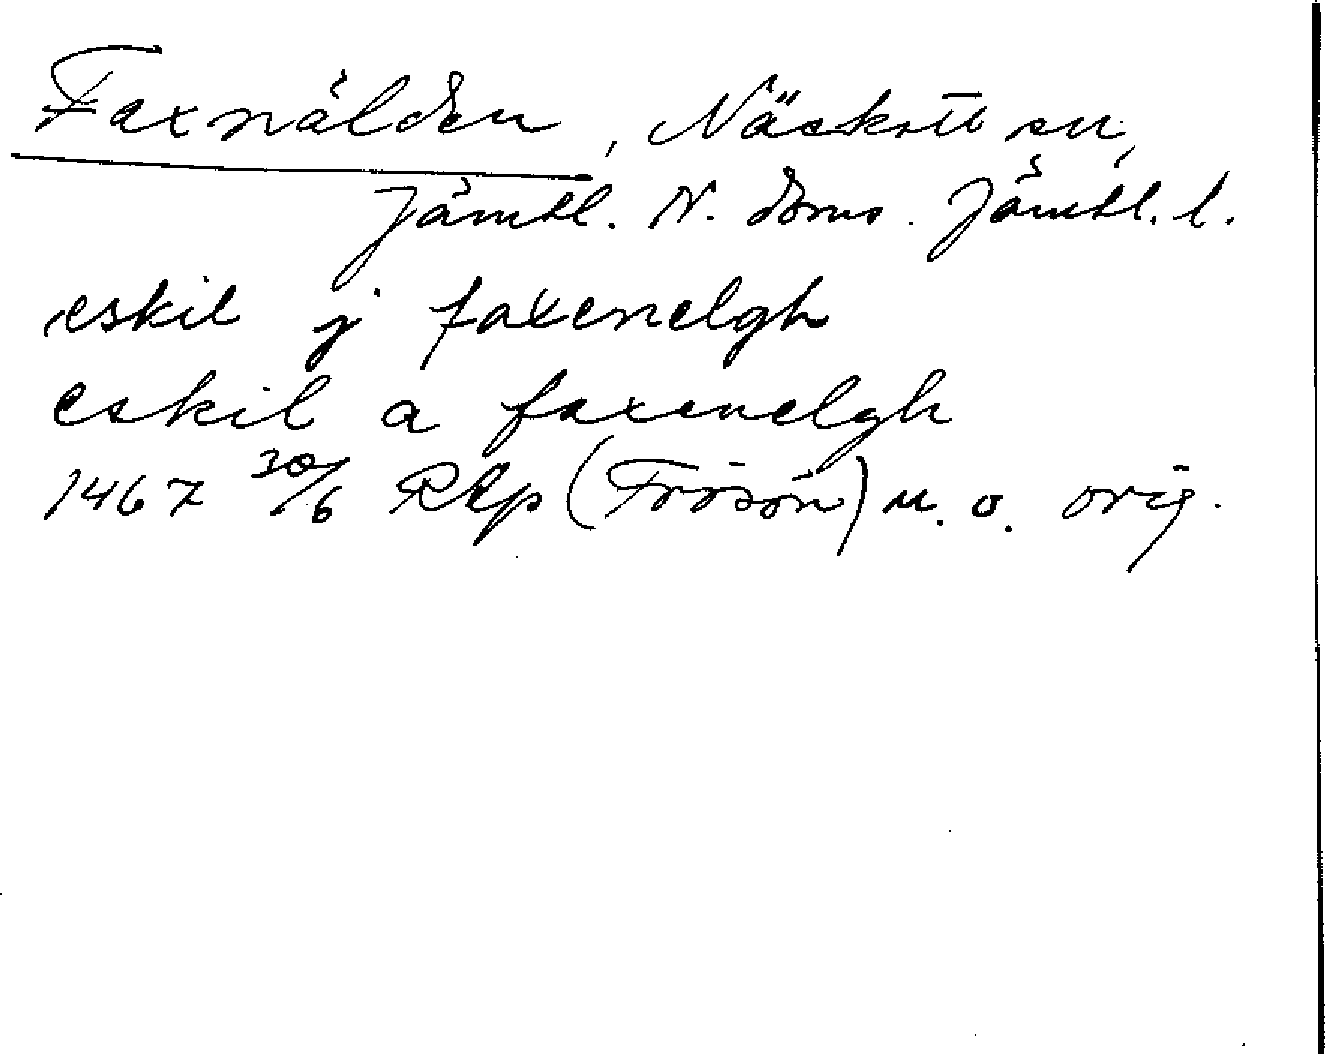 Faxnälden, Näskott sn,
Jämtl. N. doms. Jämtl. l.
eskil j faxenelgh
eskil a faxenelgh
1467 30/6 RAp (Frösön) u. o. orig.